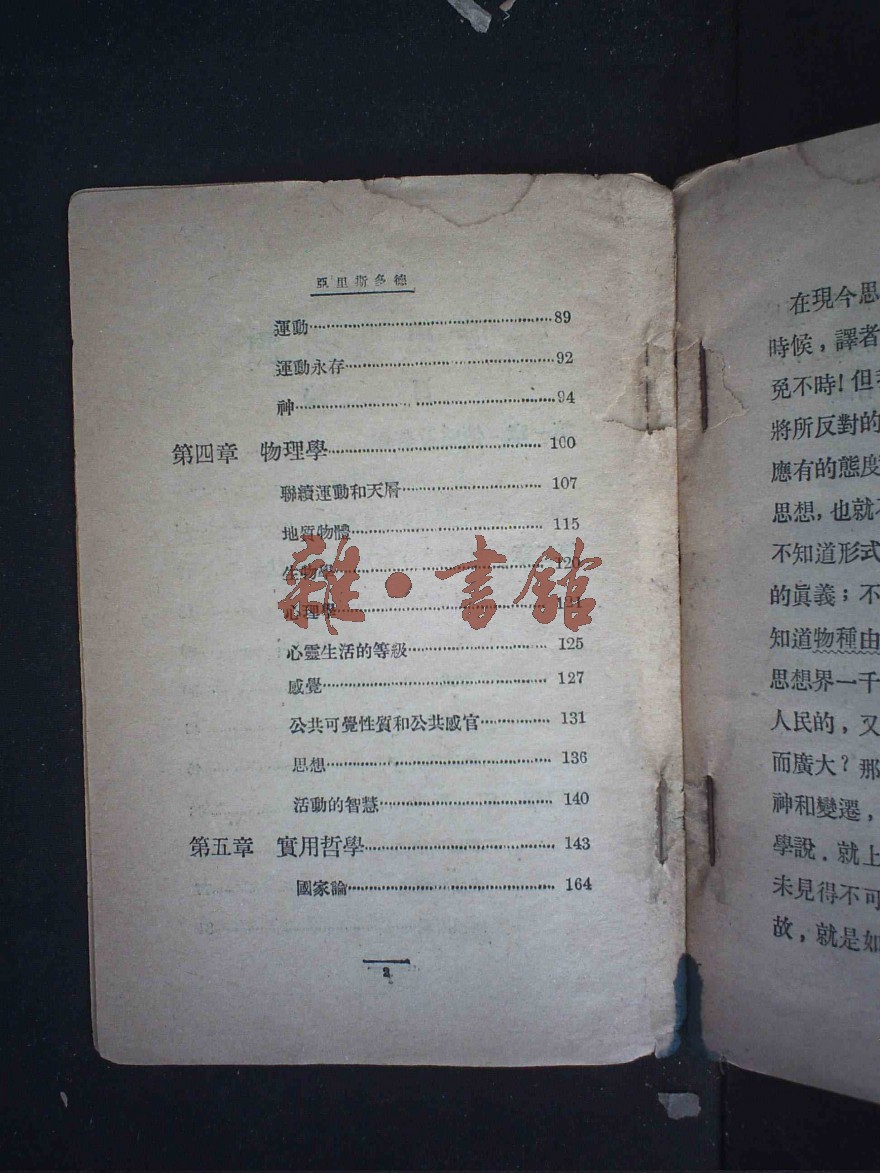 亞里斯多德
運動 89
運動永存 92
神 94
第四章 物理學 100
聯續運動和天層 107
地質物體 115
生物學 120
心理學 121
心靈生活的等級 125
感覺 127
公共可覺性質和公共感官 131
思想 136
活動的智慧 140
第五章 實用哲學 143
國家論 164
2
雜·書館
在現今思
時候，譯者
免不時！但
將所反對的
應有的態度
思想，也就
不知道形式
的眞義；不
知道物種由
思想界一千
人民的，又
而廣大？那
神和變遷，
學說．就上
未見得不可
故，就是如